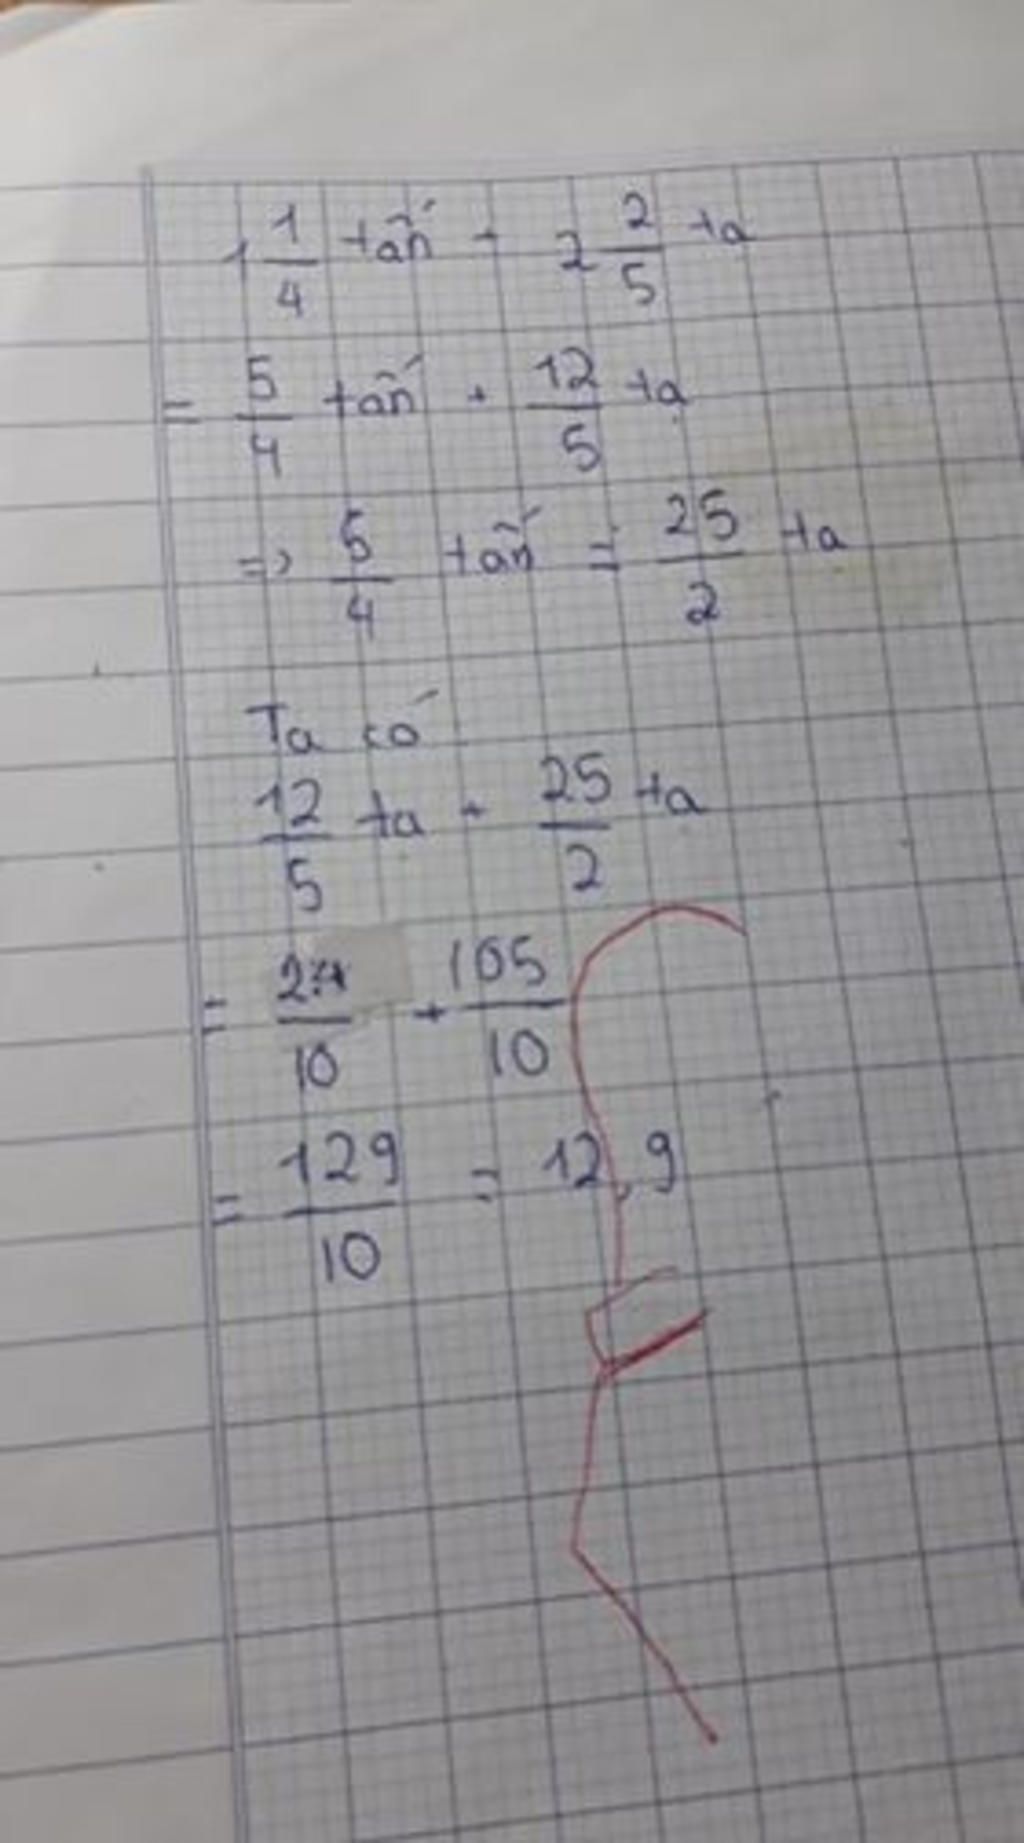 1 1/4 tấn + 2 2/5 tạ
= 5/4 tấn + 12/5 tạ
=> 5/4 tấn = 25/2 tạ
Ta có
12/5 tạ + 25/2 tạ
= 24/10 + 105/10
= 129/10 = 12,9